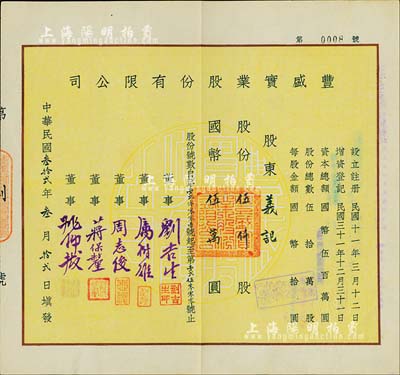 上海陽明拍賣
第 0008 號
豐盛實業股份有限公司
設立註冊 民國十一年三月十二日
增資登記 民國三十一年十二月三十一日
資本總額 國幣伍百萬圓
股份總數 伍拾萬股
每股金額 國幣拾圓
股東 義記
股份 伍仟股
國幣 伍萬圓
董事 劉吉生
董事 厲樹雄
董事 周志俊
董事 蔣保釐
董事
中華民國叁拾弍年叁月拾弍日填發
上海陽明拍賣